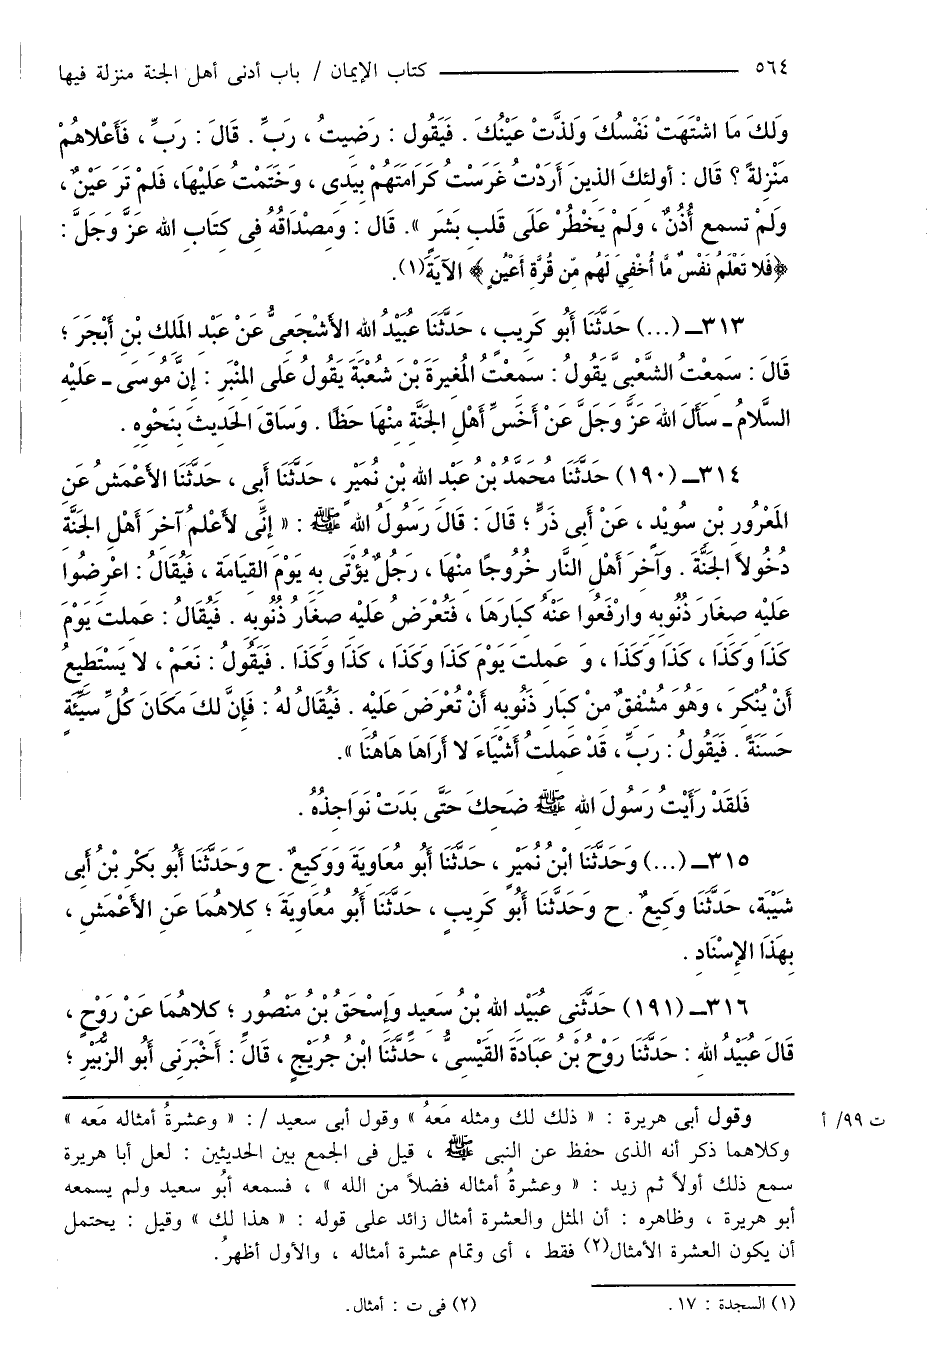 ٥٦٤ ــــــــــــــــ كتاب الإيمان / باب أدنى أهل الجنة منزلة فيها
وَلَكَ مَا اشْتَهَتْ نَفْسُكَ وَلَذَّتْ عَيْنُكَ . فَيَقُول : رَضِيتُ ، رَبِّ . قَالَ : رَبِّ ، فَأَعْلاهُمْ
مَنْزِلَةً ؟ قال : أولئكَ الذين أَرَدْتُ غَرَسْتُ كَرَامَتَهُمْ بِيَدِى ، وخَتَمْتُ عليْهَا، فَلمْ تَرَ عَيْنٌ ،
ولَمْ تسمع أُذُنٌ ، ولَمْ يَخْطُرْ عَلَى قلبِ بَشَرَ » . قال : ومصْدَاقُهُ فِى كتَاب الله عَزَّ وَجَلَّ :
﴿فَلا تَعْلَمُ نَفْسٌ مَّا أُخْفِيَ لَهُم مِّن قُرَّةِ أَعْيُنٍ﴾ الآيَة(١).
٣١٣ـ (...) حَدَّثَنَا أَبُو كُرَيب ، حَدَّثَنَا عُبَيْدُ الله الأَشْجَعِىُّ عَنْ عَبْد المَلك بْنِ أَبْجَرَ ؛
قَالَ : سَمعْتُ الشَّعْبِىَّ يَقُولُ : سَمعْتُ المُغيرَةَ بْنَ شُعْبَةَ يَقُولُ عَلى المِنْبَرِ : إنَّ مُوسَى ـ عَليْه
السَّلامُ ـ سَأَلَ اللهَ عَزَّ وَجَلَّ عَنْ أَخَسِّ أَهْلِ الجَنَّة مِنْهَا حَظّا . وَسَاقَ الحَديثَ بنَحْوه .
٣١٤ـ (١٩٠) حَدَّثَنَا مُحَمَّدُ بْنُ عَبْد الله بْنِ نُمَيْرٍ ، حَدَّثَنَا أَبِى ، حَدَّثَنَا الأَعْمَشُ عَنِ
المَعْرُور بْنِ سُويْد ، عَنْ أَبِى ذَرٍّ ؛ قَالَ : قَالَ رَسُولُ الله ﷺ : « إنِّى لأَعْلمُ آخرَ أَهْلِ الجَنَّة
دُخُولاً الجَنَّةَ . وآخرَ أَهْلِ النَّار خُرُوجًا منْهَا ، رَجُلٌ يُؤْتَى به يَوْمَ القيَامَة ، فَيُقَالُ : اعْرِضُوا
عَليْه صغَارَ ذُنُوبه وارْفَعُوا عَنْهُ كبَارَهَا ، فَتُعْرَضُ عَليْه صغَارُ ذُنُوبه . فَيُقَالُ : عَملتَ يَوْمَ
كَذَا وَكَذَا ، كَذَا وَكَذَا ، وَ عَملتَ يَوْمَ كَذَا وَكَذَا ، كَذَا وَكَذَا . فَيَقُولُ : نَعَمْ ، لا يَسْتَطِيعُ
أَنْ يُنْكرَ ، وَهُوَ مُشْفقٌ منْ كبَار ذَنُوبه أَنْ تُعْرَضَ عَليْه . فَيُقَالُ لهُ : فَإنَّ لكَ مَكَانَ كُلِّ سَيِّئَةٍ
حَسَنَةً . فَيَقُولُ : رَبِّ ، قَدْ عَملتُ أَشْيَاءَ لا أَرَاهَا هَاهُنَا ».
فَلقَدْ رَأَيْتُ رَسُولَ الله ﷺ ضَحكَ حَتَّى بَدَتْ نَوَاجذُهُ .
٣١٥ـ (...) وَحَدَّثَنَا ابْنُ نُمَيْر ، حَدَّثَنَا أَبُو مُعَاويَةَ وَوَكيعٌ . ح وَحَدَّثَنَا أَبُو بَكْرِ بْنُ أَبِى
شَيْبَة، حَدَّثَنَا وَكيعٌ . ح وحَدَّثَنَا أَبُو كُرَيب ، حَدَّثَنَا أَبُو مُعَاويَةَ ؛ كلاهُمَا عَنِ الأَعْمَشِ ،
بهَذَا الإسْنَاد .
٣١٦ـ (١٩١) حَدَّثَنِى عُبَيْدُ الله بْنُ سَعيد وَإسْحَقُ بْنُ مَنْصُور ؛ كلاهُمَا عَنْ رَوْحٍ ،
قَالَ عُبيْدُ الله : حَدَّثَنَا رَوْحُ بْنُ عبَادَةَ القَيْسىُّ ، حَدَّثَنَا ابْنُ جُرَيْجٍ ، قَالَ : أَخْبَرَنِى أَبُو الزُّبَيْرِ ؛
وقول أبى هريرة : « ذلك لك ومثله معَهُ » وقول أبى سعيد /: « وعشرةُ أمثاله معَه »
ت ٩٩/ أ
وكلاهما ذكر أنه الذى حفظ عن النبى ﷺ ، قيل فى الجمع بين الحديثين : لعل أبا هريرة
سمع ذلك أولاً ثم زيد : « وعشرةُ أمثاله فضلاً من الله » ، فسمعه أبُو سعيد ولم يسمعه
أبو هريرة ، وظاهره : أن المثل والعشرة أمثال زائد على قوله : « هذا لك » وقيل : يحتمل
أن يكون العشرة الأمثال(٢) فقط ، أى وتمام عشرة أمثاله ، والأول أظهرُ.
(١) السجدة : ١٧ .
(٢) فى ت : أمثال.